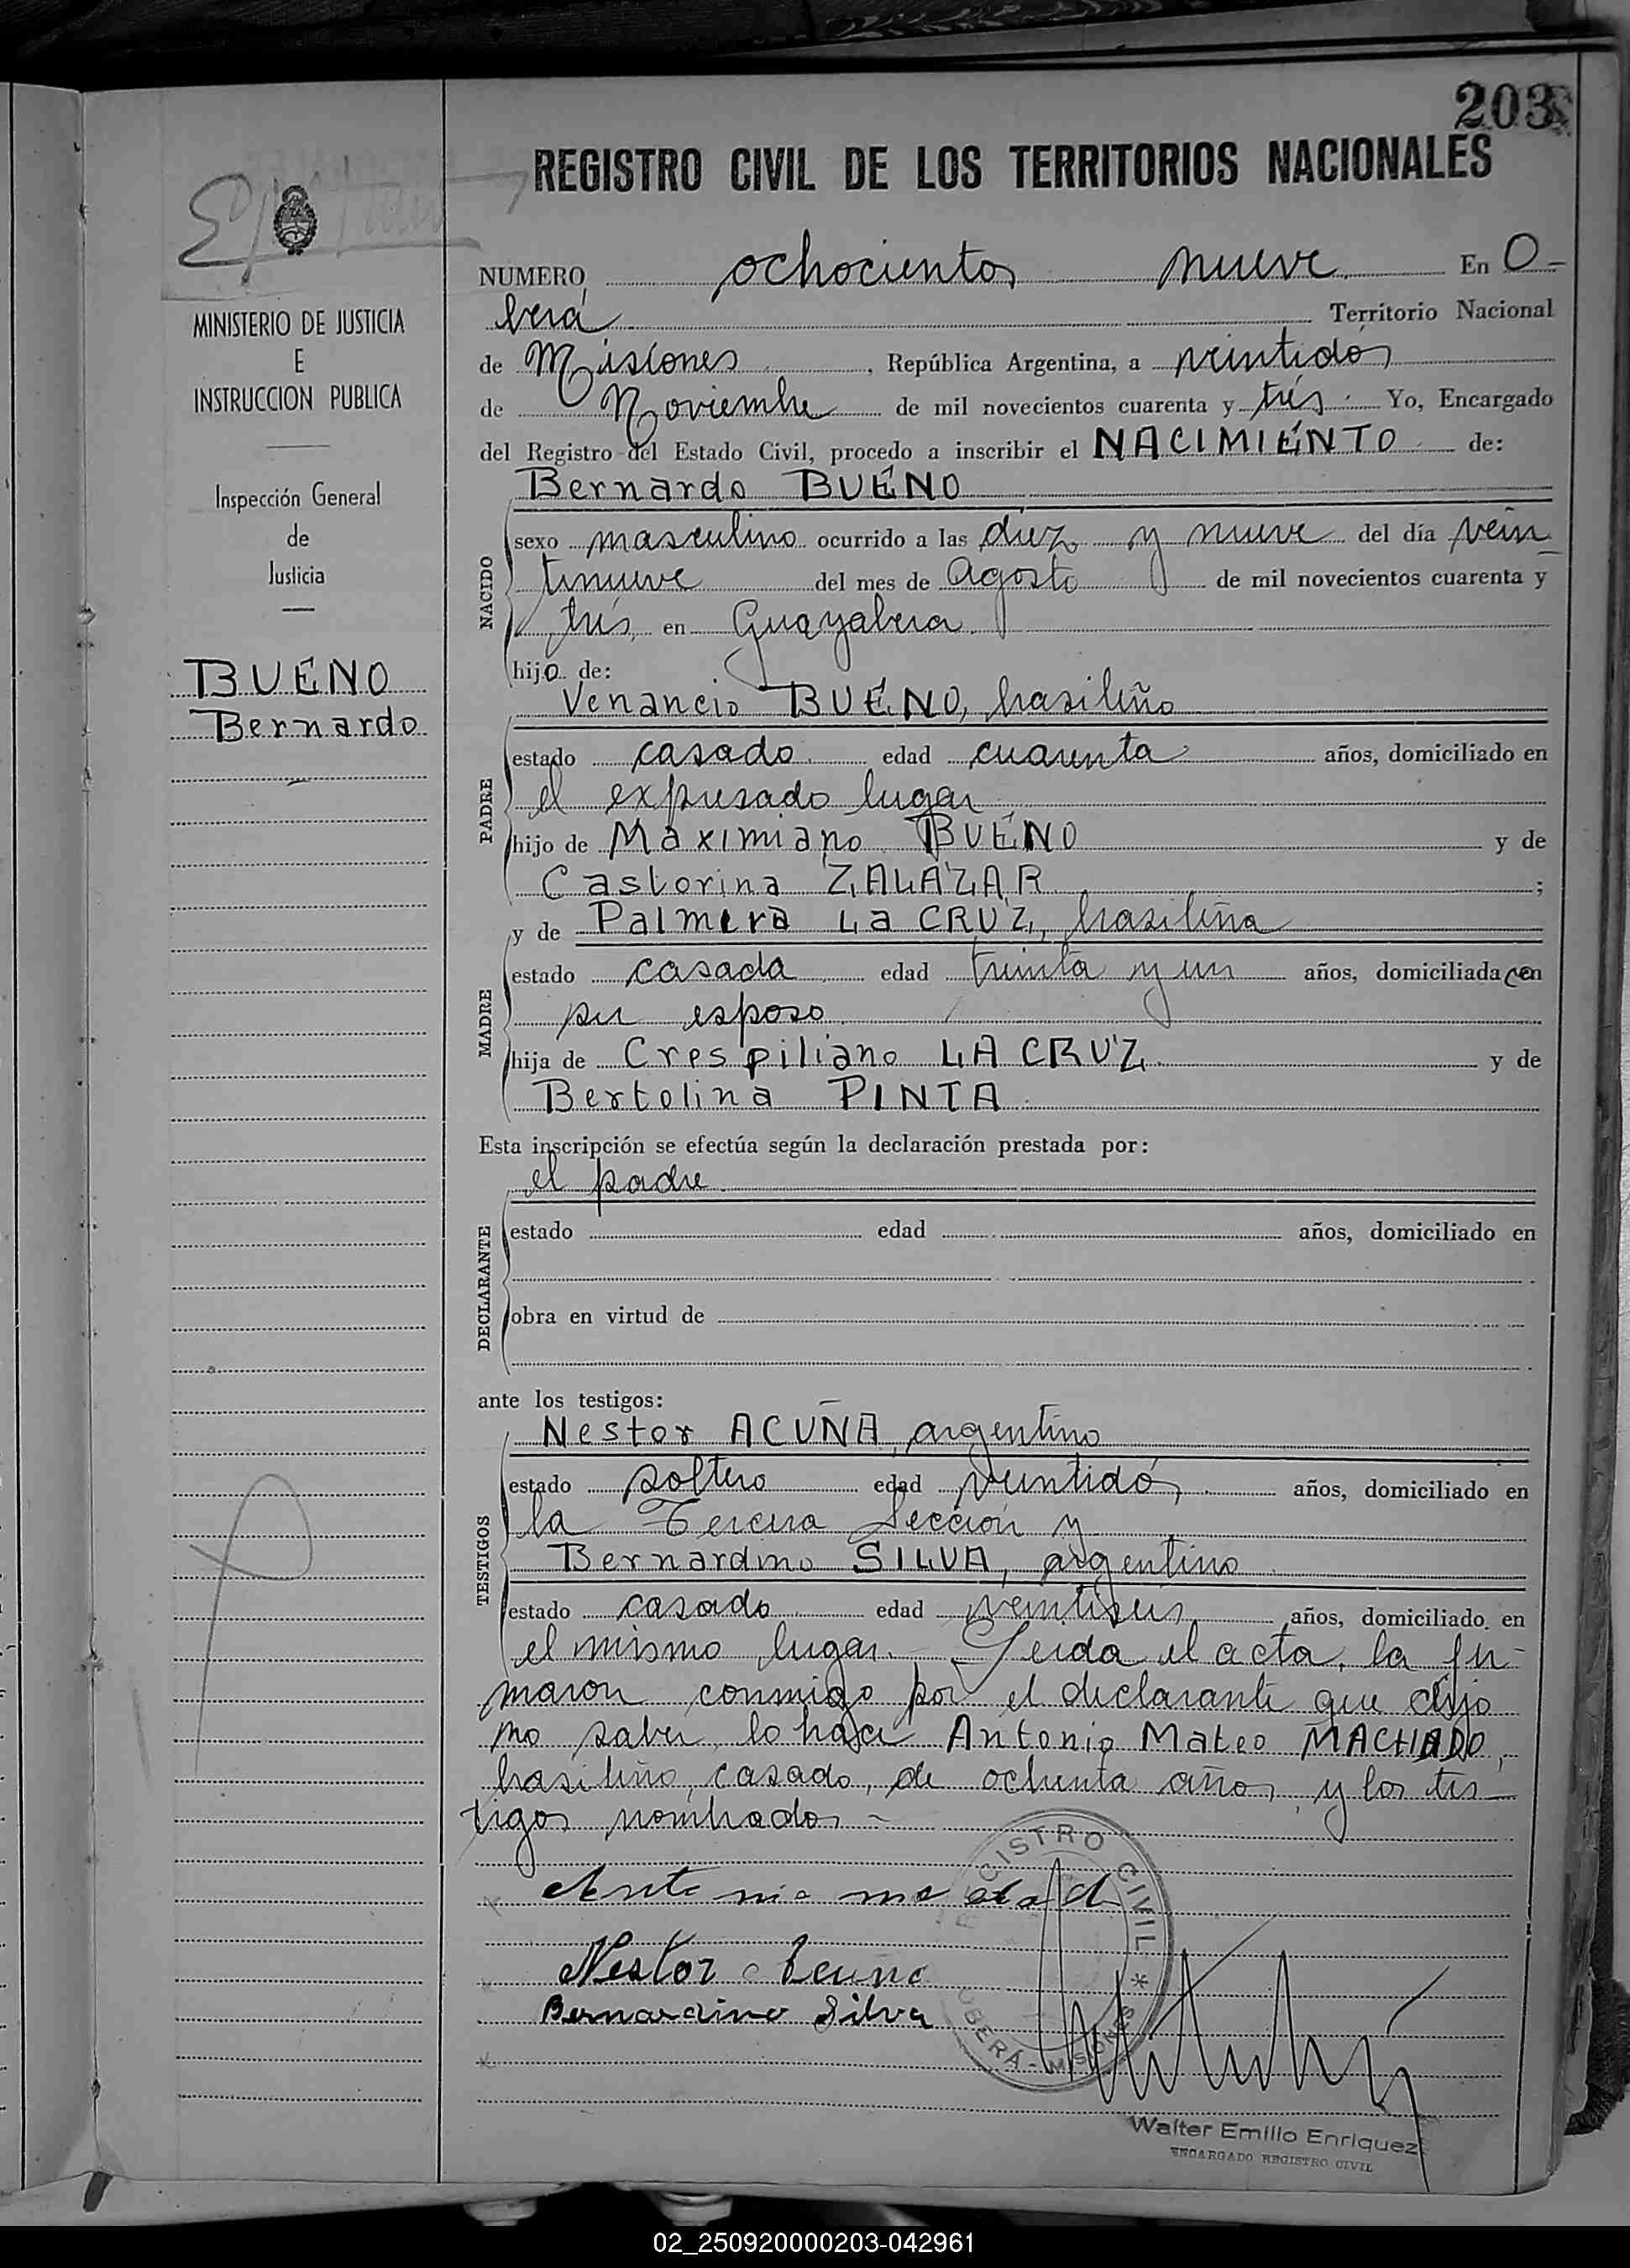 203
REGISTRO CIVIL DE LOS TERRITORIOS NACIONALES
MINISTERIO DE JUSTICIA
E
INSTRUCCION PUBLICA
Inspección General
de
Justicia
BUENO
Bernardo
NUMERO ochocientos nueve En O-
berá Territorio Nacional
de Misiones, República Argentina, a veintidós
de Noviembre de mil novecientos cuarenta y trés. Yo, Encargado
del Registro del Estado Civil, procedo a inscribir el NACIMIENTO de:
Bernardo BUENO
NACIDO
sexo masculino ocurrido a las diez y nueve del día vein
tinueve del mes de Agosto de mil novecientos cuarenta y
trés, en Guayabera.
hijo de:
Venancio BUENO, brasileño
PADRE
estado casado edad cuarenta años, domiciliado en
el expresado lugar
hijo de Maximiano BUENO y de
Castorina ZALAZAR ;
y de Palmera La CRUZ, brasileña
MADRE
estado casada edad treinta y un años, domiciliada con
su esposo
hija de Crespiliano LA CRUZ y de
Bertolina PINTA
Esta inscripción se efectúa según la declaración prestada por:
el padre
DECLARANTE
estado edad años, domiciliado en
obra en virtud de
ante los testigos:
Nestor ACUÑA, argentino
TESTIGOS
estado soltero edad veintidós, años, domiciliado en
la Tercera Sección y
Bernardino SILVA, argentino
estado casado edad veintiseis años, domiciliado en
el mismo lugar. Leida el acta, la fir-
maron conmigo por el declarante que dijo
no saber, lo hace Antonio Mateo MACHADO,
brasileño, casado, de ochenta años, y los tes-
tigos nombrados
Nestor Acuña
Bernardino Silva
REGISTRO CIVIL * OBERÁ - MISIONES
Walter Emilio Enriquez
ENCARGADO REGISTRO CIVIL
02_250920000203-042961